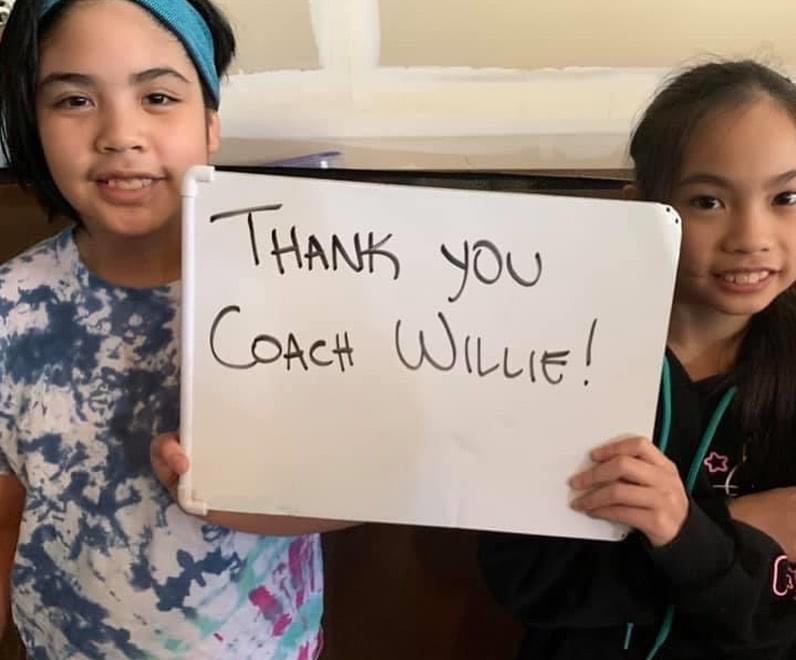 THANK YOU
COACH WILLIE!